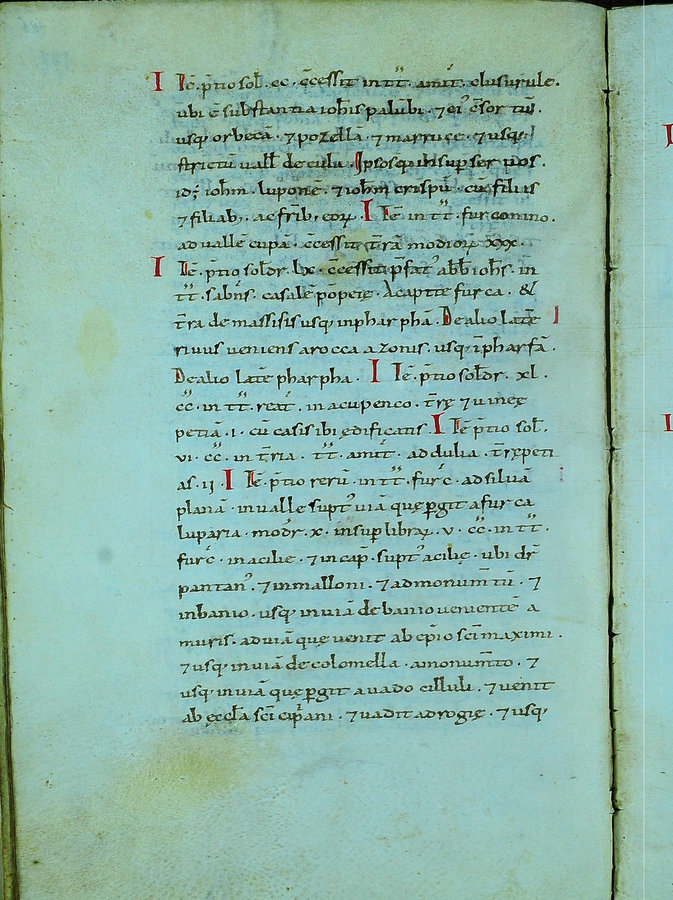 I Iē. p̄tio sol̄. cc. c̄cessit in tt̄. amit̄. clusurule.
ubi ē substantia ioh̄is palūbi. ⁊ ei' c̄sortiū.
usq; orbecā. ⁊ pozellā. ⁊ marrucē. ⁊ usq;
strictū vall̄ de culu. Ipsosq; ibi sup̄ ser uos.
id; ioh̄m. luponē. ⁊ ioh̄m crispū. cū filiis
⁊ filiab; ac fr̄ib; eoꝝ. I Iē in tt̄. furconino.
ad vallē cupā. c̄cessit t̄rā modioꝝ xxx.
I Iē. p̄tio sol̄dr. lx. c̄cessit p̄fat' abb̄ ioh̄s. in
tt̄. sabn̄s. casalē pōpeię. A capite furca. &
t̄ra de massisis usq; in pharphā. De alio latē
rivus veniens a rocca azonis. usq; ī pharfā.
De alio latē pharpha. I Iē. p̄tio sol̄dr. xl.
cc̄. in tt̄. reat̄. in acupenco. t̄rę ⁊ uineę
petiā. i. cū casis ibi ędificatis. I Iē p̄tio sol̄.
vi. cc̄. in t̄ria. tt̄. amit̄. ad dulia. t̄rę peti
as. ii. I Iē. p̄tio rerū. in tt̄. furc̄. ad siluā
planā. in valle supt' uiā quę p̄git a furca
luparia. modr̄. x. insup libraꝝ. v. cc̄. in tt̄.
furc̄. in acilie. ⁊ in cap̄. supt' acilię. ubi dr̄
pantan'. ⁊ in malloni. ⁊ ad monum̄tū. ⁊
in banio. usq; in uiā de banio uenientē a
muris. ad uiā quę uenit ab ep̄io sc̄i maximi.
⁊ usq; in uiā de colomella. a monum̄to. ⁊
usq; in uiā quę p̄git a uado cilluli. ⁊ uenit
ab ęccl̄a sc̄i cip̄ani. ⁊ uadit ad rogię. ⁊ usq;